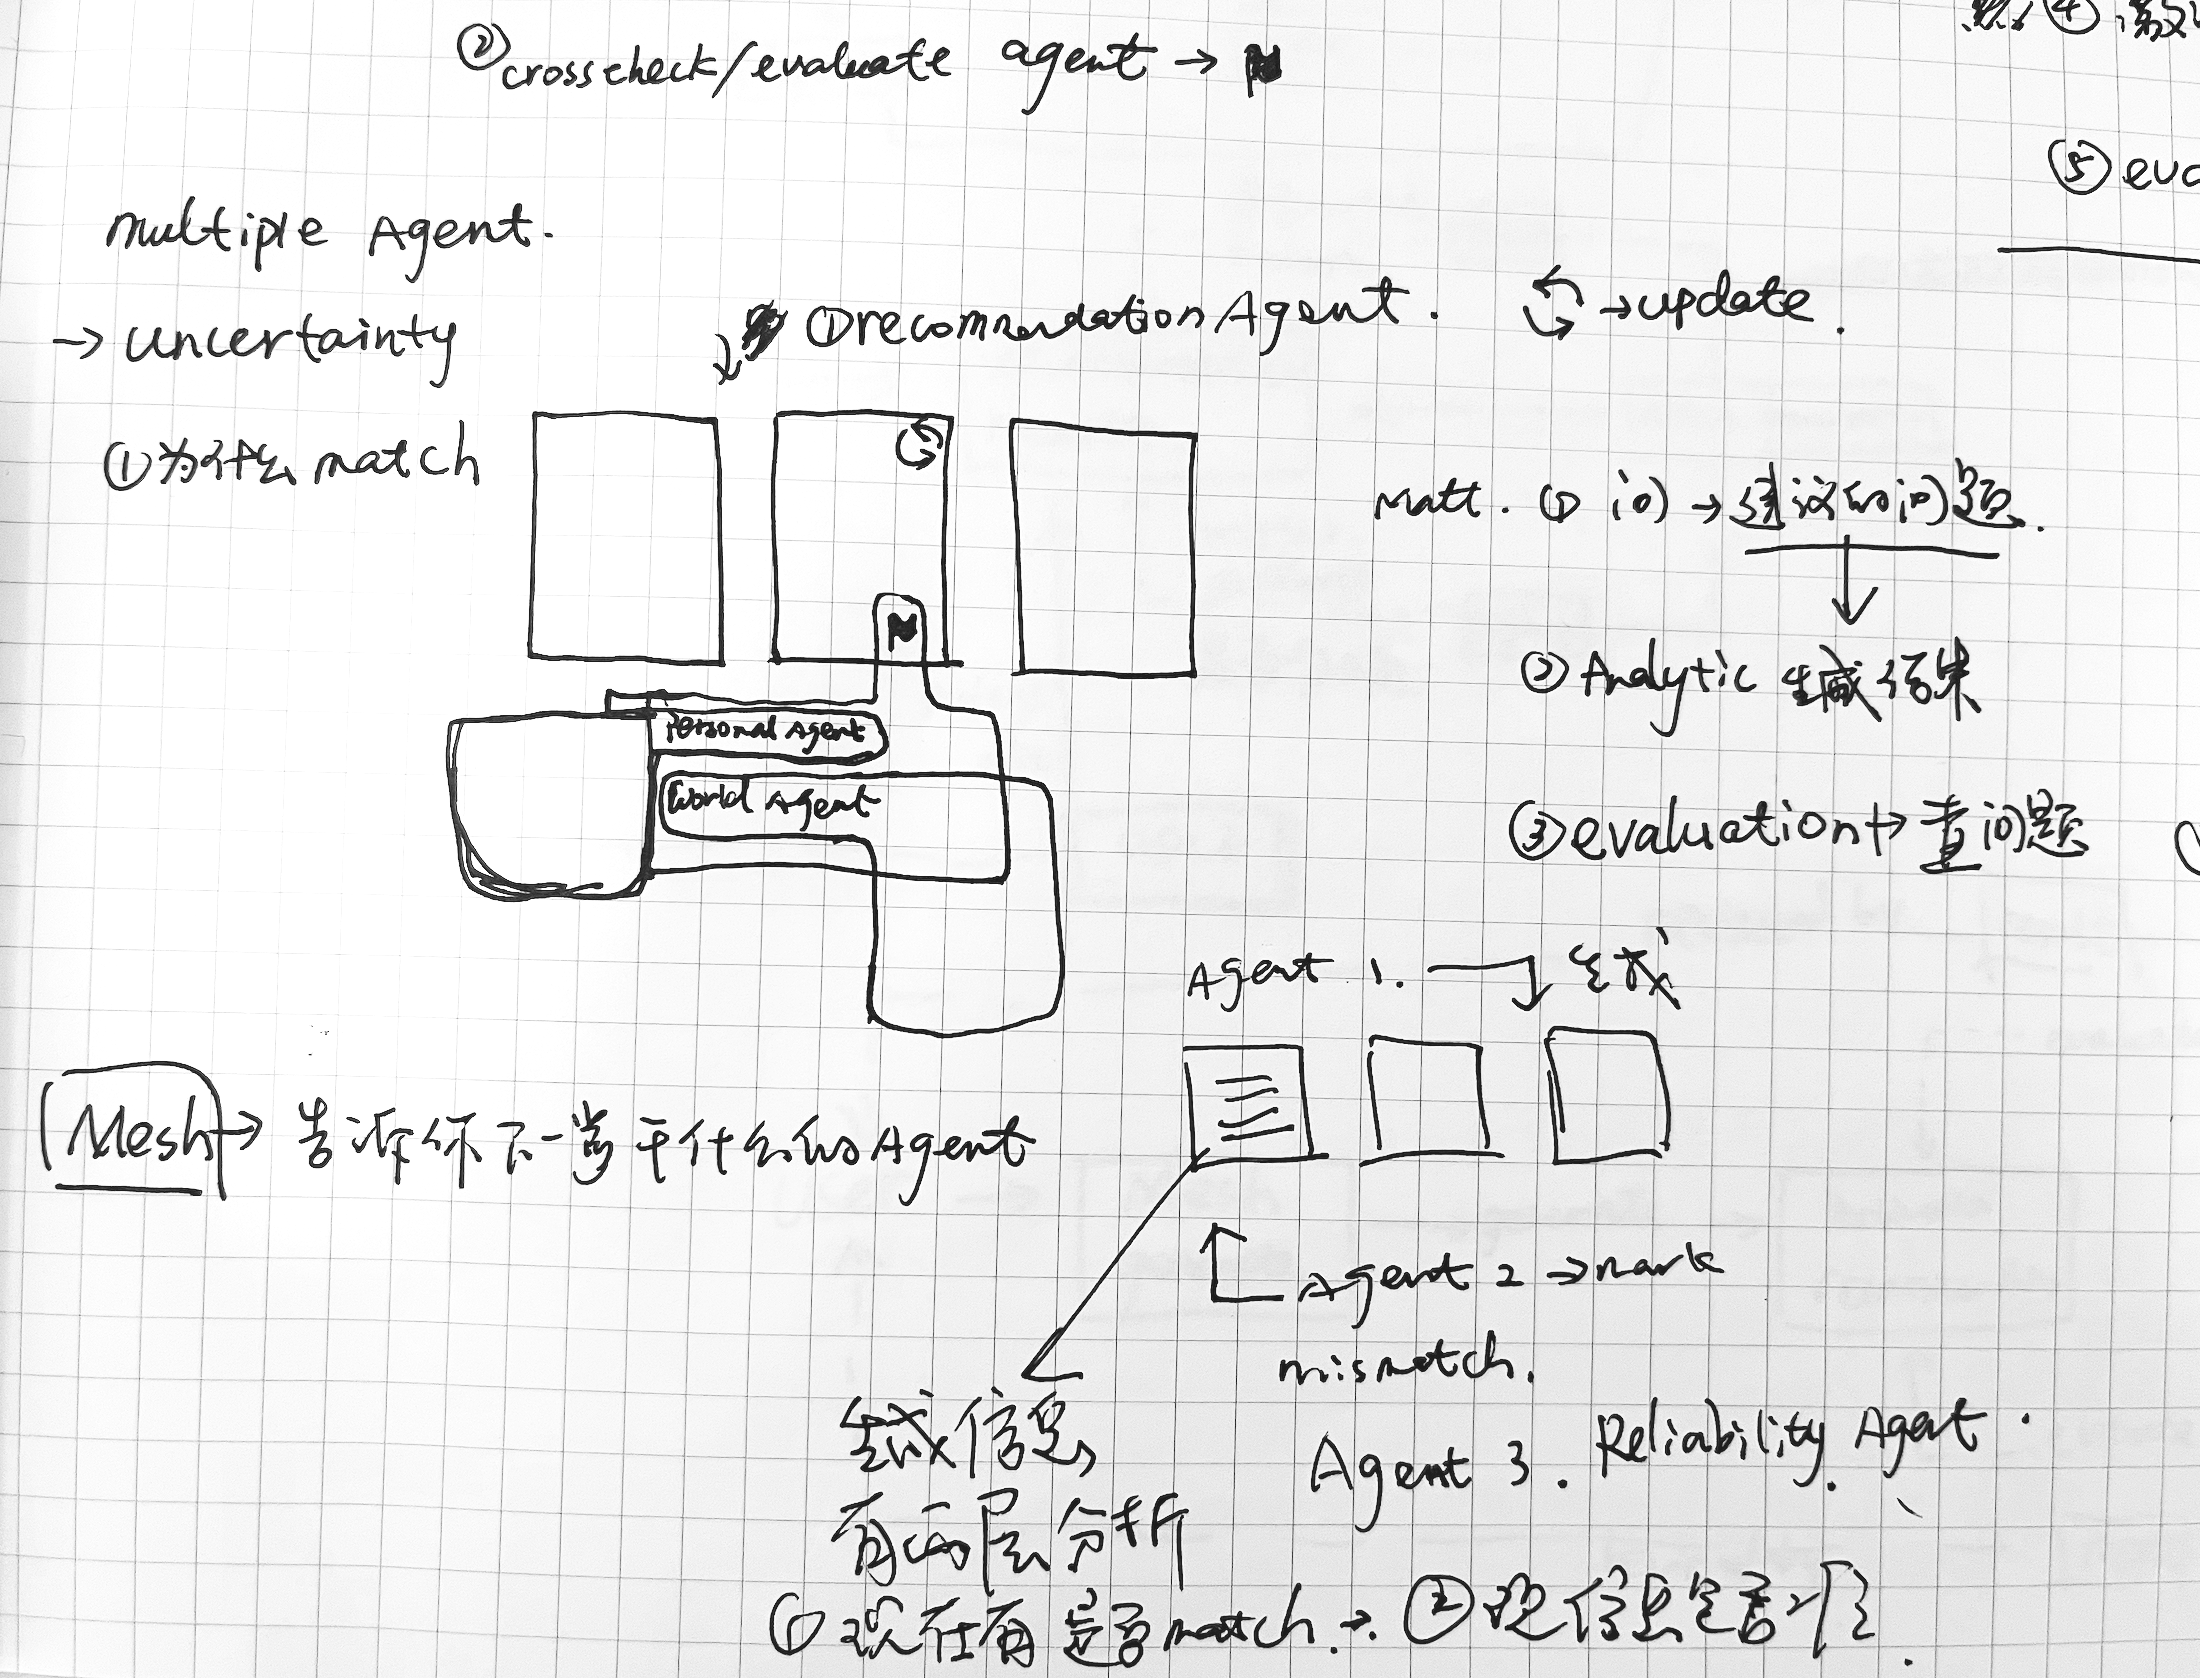 ④
②crosscheck/evaluate agent →
⑤ eva
multiple Agent.
→ uncertainty
①为什么 match
①recommendation Agent.
→update.
Matt. ① 问 → 建议的问题.
② Analytic 生成结果
③ evaluation → 查问题
Personal Agent
World Agent
Agent 1. 生成
Mesh → 告诉你下一步干什么的 Agent
Agent 2 → mark
mismatch.
Agent 3. Reliability Agent.
生成信息
有两层分析
① 现在有是否 match. → ② 现信息是否